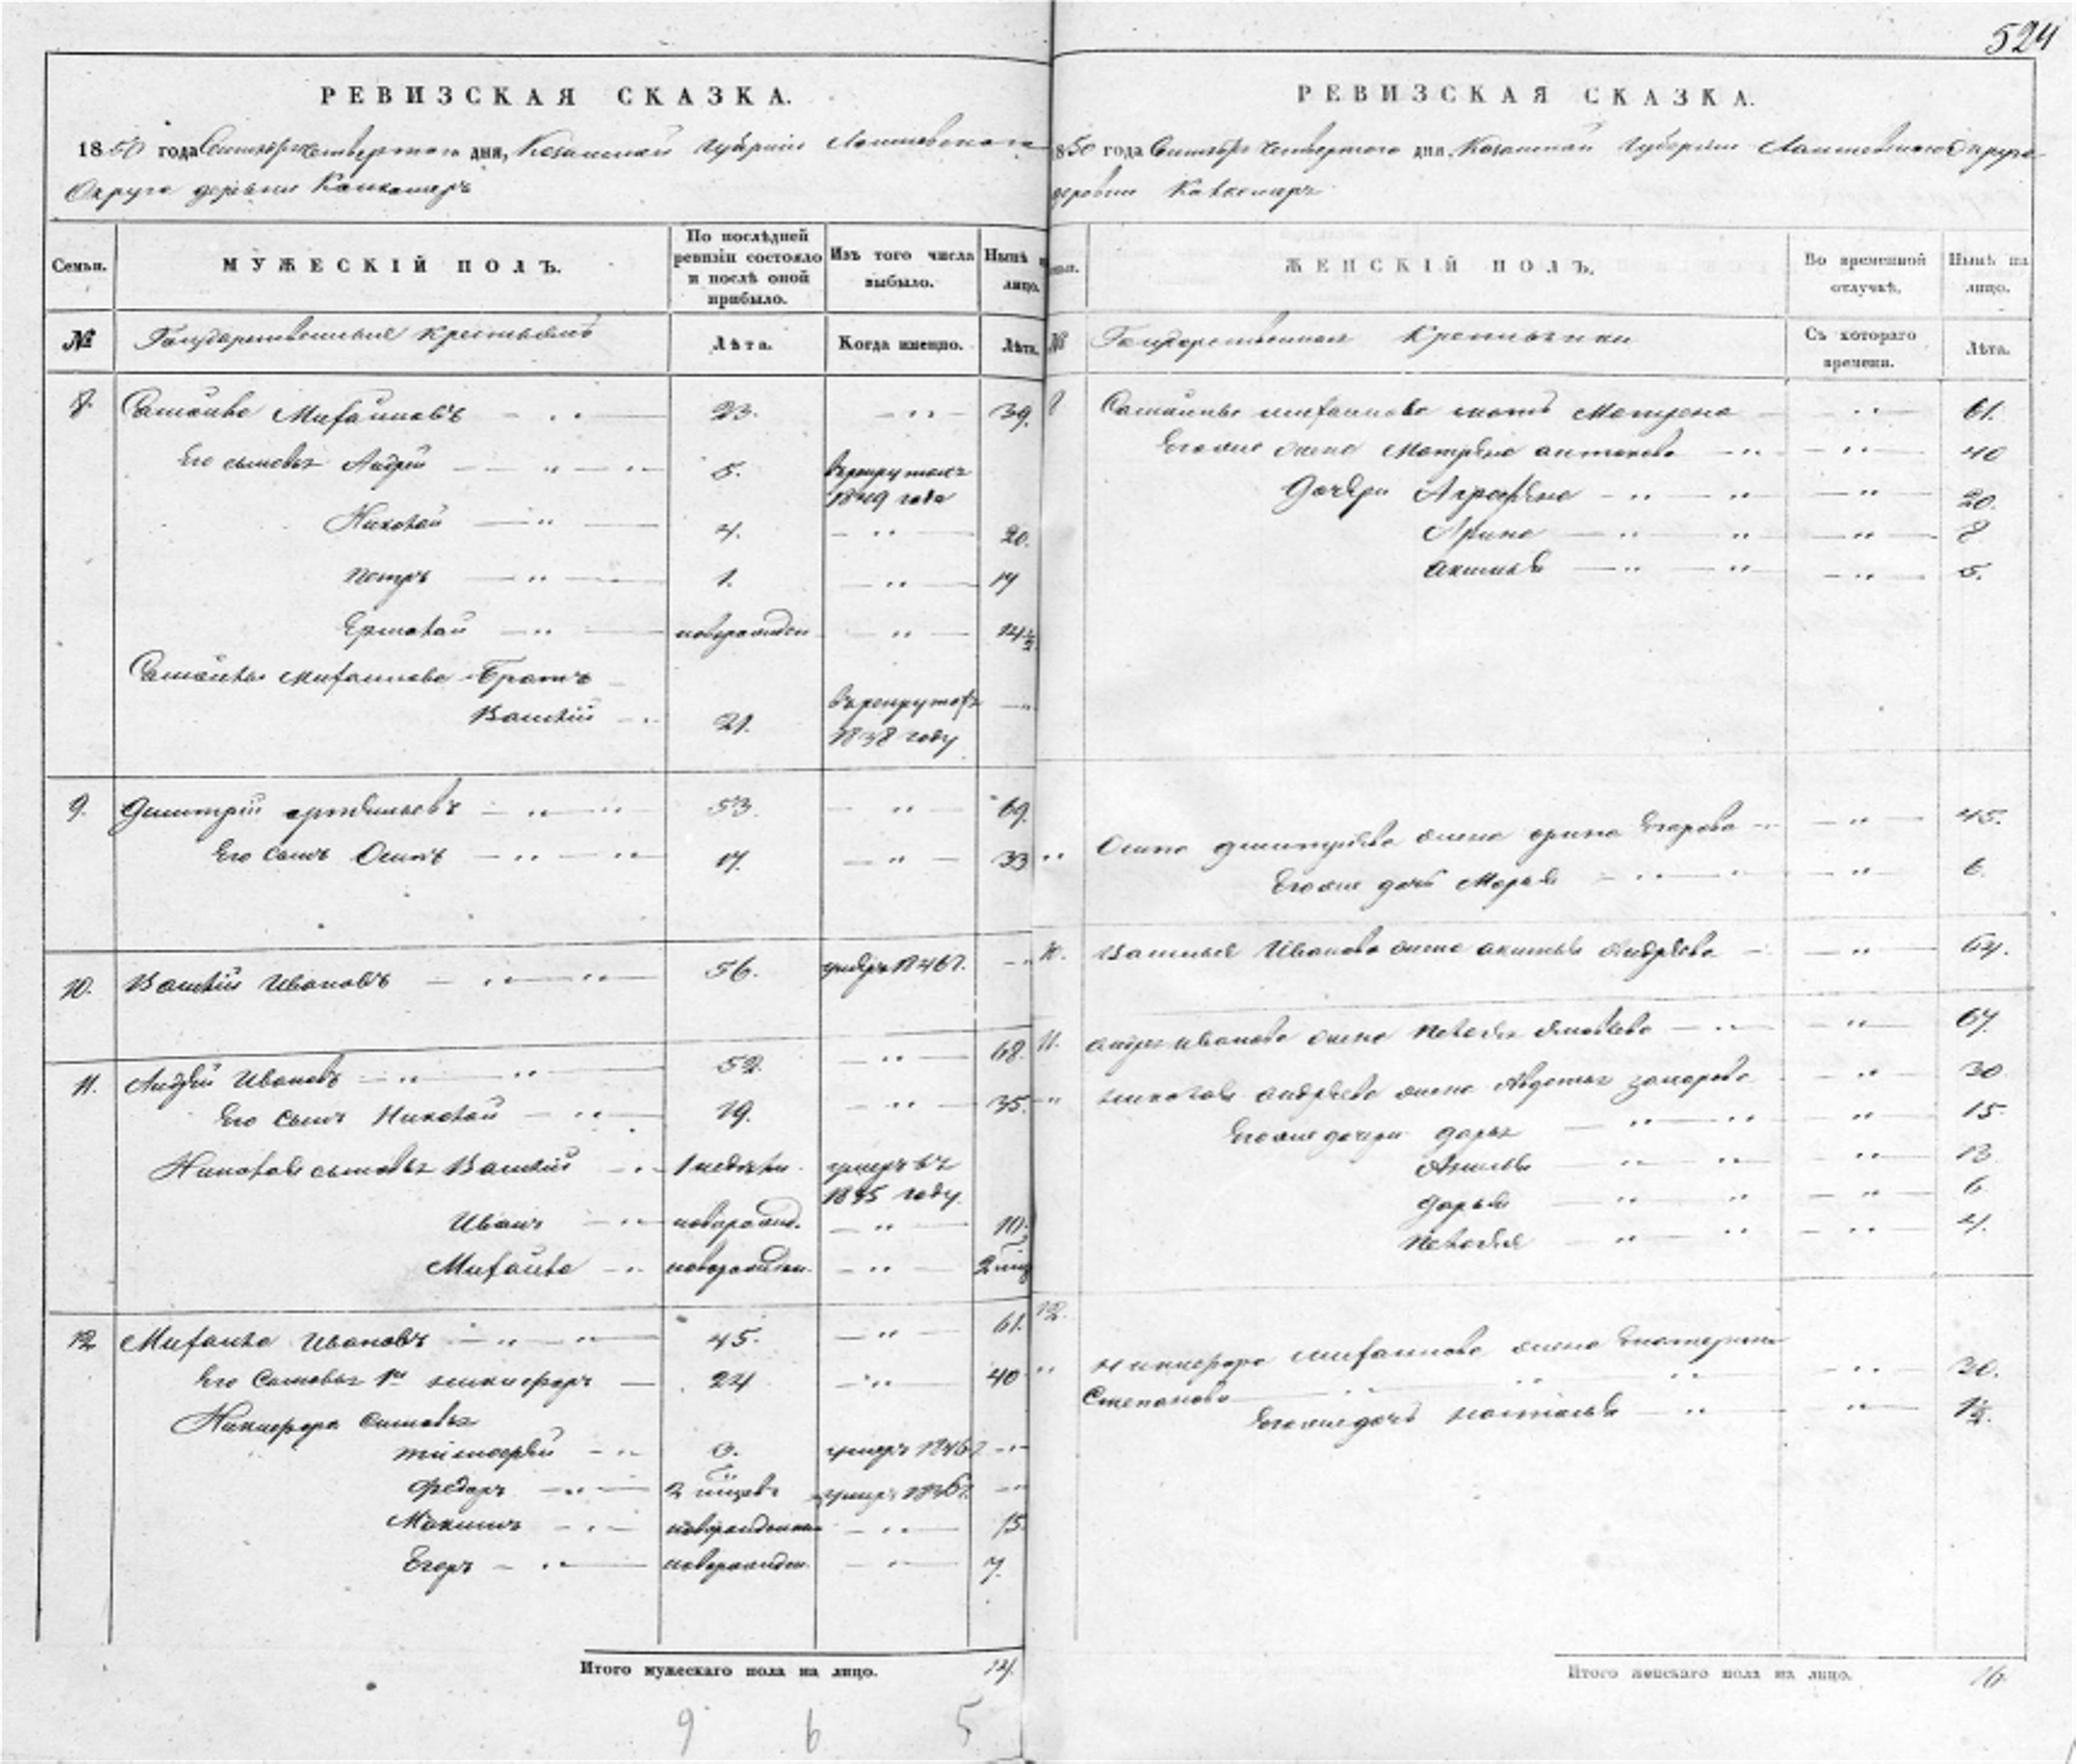 524
РЕВИЗСКАЯ СКАЗКА.
1850 года Сентября четвертаго дня, Казанской Губернiи Лаишевскаго
Округа деревни
Семьи.
МУЖЕСКIЙ ПОЛЪ.
По послѣдней ревизiи состояло и послѣ оной прибыло.
Изъ того числа выбыло.
Нынѣ на лицо.
№
Государственные крестьянъ
Лѣта.
Когда именно.
Лѣта.
8. Самойла Михайловъ 23. 39.
Его сыновья Андрей 5. въ рекрутахъ 1849 года
Николай 4. 20.
Петръ 1. 17
Ермолай новорожден 14½
Самойлы Михайлова Братъ
Василiй 21. въ рекрутахъ 1838 году
9. Дмитрiй 53. 69.
Его сынъ Осипъ 17. 33
10. Василiй Ивановъ 56. умеръ 1846 г.
11. Андрей Ивановъ 52. 68.
Его сынъ Николай 19. 35.
Николая сыновья Василiй 1 недѣли умеръ въ 1835 году.
Иванъ новорожд. 10.
Михайла новорожден. 2 мѣс
12 Михайла Ивановъ 45. 61.
Его Сыновья 1й Никифоръ 24 40
Никифора Сыновья
Тимофей умеръ
Федоръ 2 мѣсяцевъ умеръ
Максимъ новорожденны 15.
Егоръ новорожден. 7.
Итого мужескаго пола на лицо. 14.
9 6 5
РЕВИЗСКАЯ СКАЗКА.
1850 года Сентября четвертаго дня, Казанской Губернiи Лаишевскаго Округа
деревни
ЖЕНСКIЙ ПОЛЪ.
Во временной отлучкѣ.
Нынѣ на лицо.
№
Государственныя Крестьянки
Съ котораго времени.
Лѣта.
8 Самойлы Михайлова мать Матрена 61.
Его же жена Матрена Антонова 40
Дочери Аграфена 20.
Арина 8
Акилина 5.
Осипа Дмитрiева жена Арина Егорова 45.
Его же дочь Марья 6.
10. Василья Иванова жена Андрѣева 64.
11. Андрея Иванова жена Пелагѣя Яковлева 67.
Николая Андрѣева жена Авдотья Захарова 30
Его же дочери Дарья 15
13
Дарья 6
Пелагѣя 4.
12.
Никифора Михайлова жена Екатерина
Степанова 30.
Его же дочь Наталья 1½.
Итого женскаго пола на лицо. 16